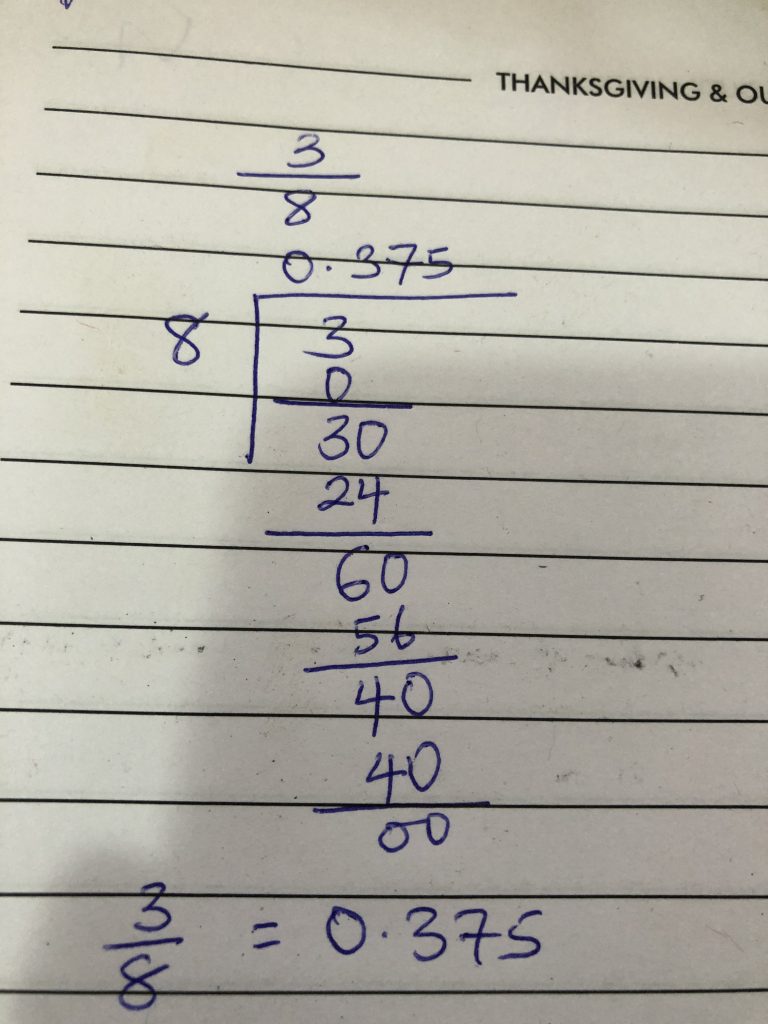 THANKSGIVING & OU
3
8
0.375
8 3
0
30
24
60
56
40
40
00
3/8 = 0.375